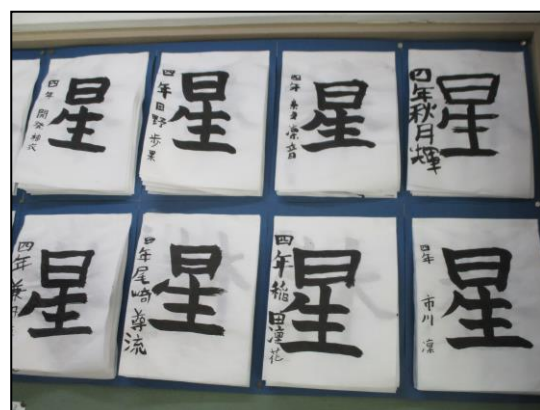 星
四年
星
四年日野歩果
星
四年
凛音
星
四年秋月輝
星
四年
星
四年尾崎尊流
星
四年稲田凜花
星
四年 市川 凜